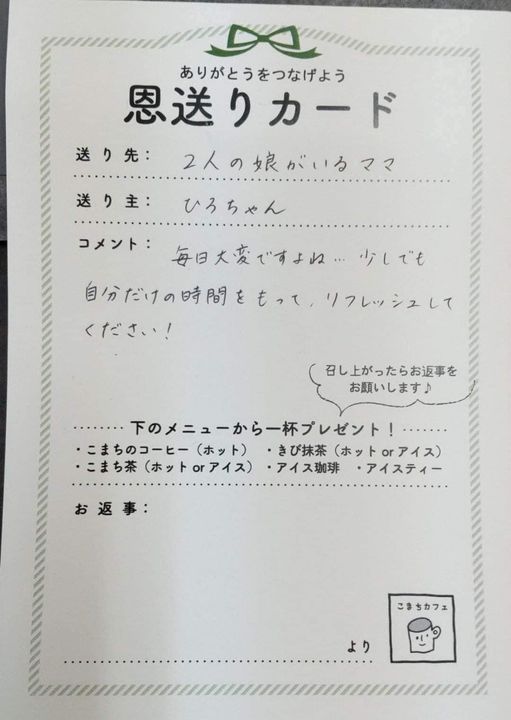 ありがとうをつなげよう
恩送りカード
送り先： 2人の娘がいるママ
送り主： ひろちゃん
コメント： 毎日大変ですよね… 少しでも
自分だけの時間をもって、リフレッシュして
ください！
召し上がったらお返事を
お願いします♪
下のメニューから一杯プレゼント！
・こまちのコーヒー（ホット） ・きび抹茶（ホット or アイス）
・こまち茶（ホット or アイス） ・アイス珈琲 ・アイスティー
お返事：
こまちカフェ
より